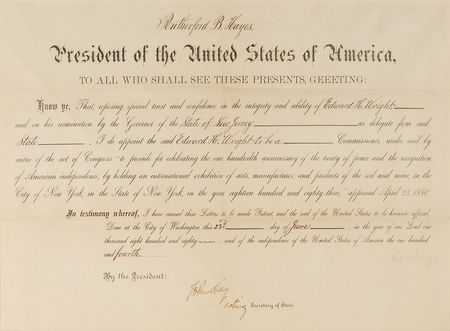 Rutherford B. Hayes,
President of the United States of America,
TO ALL WHO SHALL SEE THESE PRESENTS, GREETING:
Know ye, That, reposing special trust and confidence in the integrity and ability of Edward H. Wright
and on his nomination by the Governor of the State of New Jersey as delegate from said
State, I do appoint the said Edward H. Wright to be a Commissioner, under and by
virtue of the act of Congress "to provide for celebrating the one hundredth anniversary of the treaty of peace and the recognition
of American independence, by holding an international exhibition of arts, manufactures, and products of the soil and mine, in the
City of New York, in the State of New York, in the year eighteen hundred and eighty-three," approved April 23, 1880.
In testimony whereof, I have caused these Letters to be made Patent, and the seal of the United States to be hereunto affixed.
Done at the City of Washington this 23rd day of June, in the year of our Lord one
thousand eight hundred and eighty, and of the independence of the United States of America the one hundred
and fourth.
By the President:
John Hay
Acting Secretary of State.